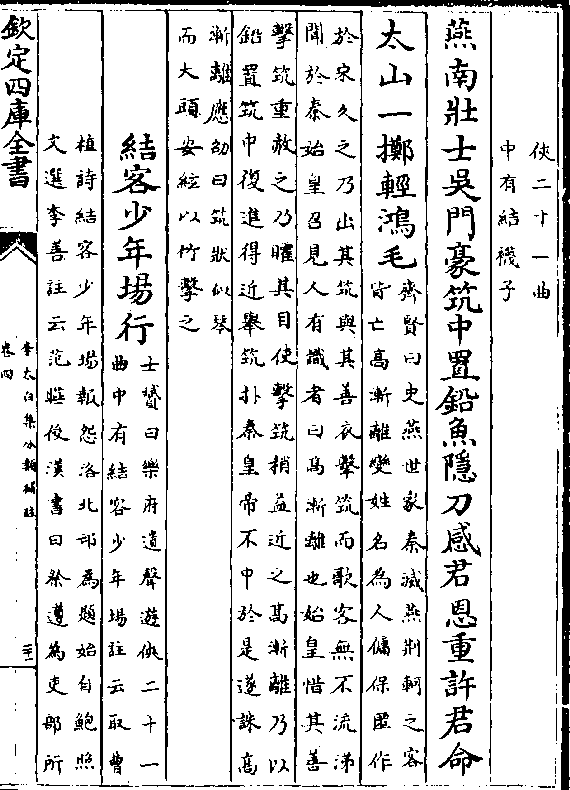 俠二十一曲
中有結襪子
燕南壯士吳門豪筑中置鉛魚隱刀感君恩重許君命
太山一擲輕鴻毛
齊賢曰史燕世家秦滅燕荆軻之客
皆亡高漸離變姓名為人傭保匿作
於宋久之乃出其筑與其善衣擊筑而歌客無不流涕
聞於秦始皇召見人有識者曰髙漸離也始皇惜其善
擊筑重赦之乃矐其目使擊筑稍益近之髙漸離乃以
鉛置筑中復進得近舉筑扑秦皇帝不中於是遂誅高
漸離應劭曰筑狀似琴
而大頭安絃以竹擊之
結客少年場行
士贇曰樂府遺聲遊俠二十一
曲中有結客少年場註云取曹
植詩結客少年場報怨洛北邙為題始自鮑照
文選李善註云范曄後漢書曰祭遵為吏部所
欽定四庫全書
李太白集分類補註
卷四
二十一